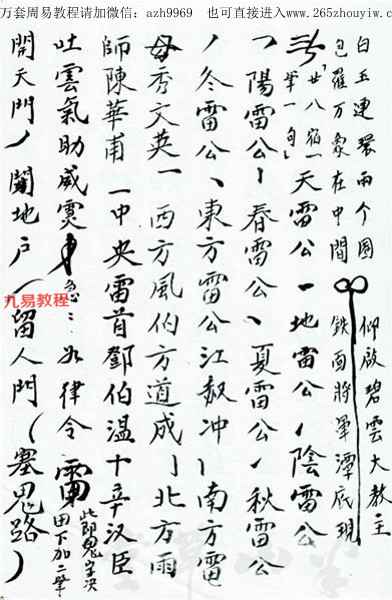 万套周易教程请加微信：azh9969 也可直接进入www.265zhouyiw.com
白玉連環兩个圈 仰啟碧雲大教主
包羅万象在中間 鉄面將軍潭底現
廿八宿一筆一勾
天雷公一地雷公丿陰雷公
陽雷公丨春雷公丶夏雷公丿秋雷公
丿冬雷公丶東方雷公江赦冲丨南方雷
母秀文英一西方風伯方道成丨北方雨
師陳華甫一中央雷首鄧伯温十辛汉臣
吐雲氣助威灵 急〻如律令
此即鬼字决
田下加二筆
開天門丿闢地户 留人門（塞鬼路）
九易教程